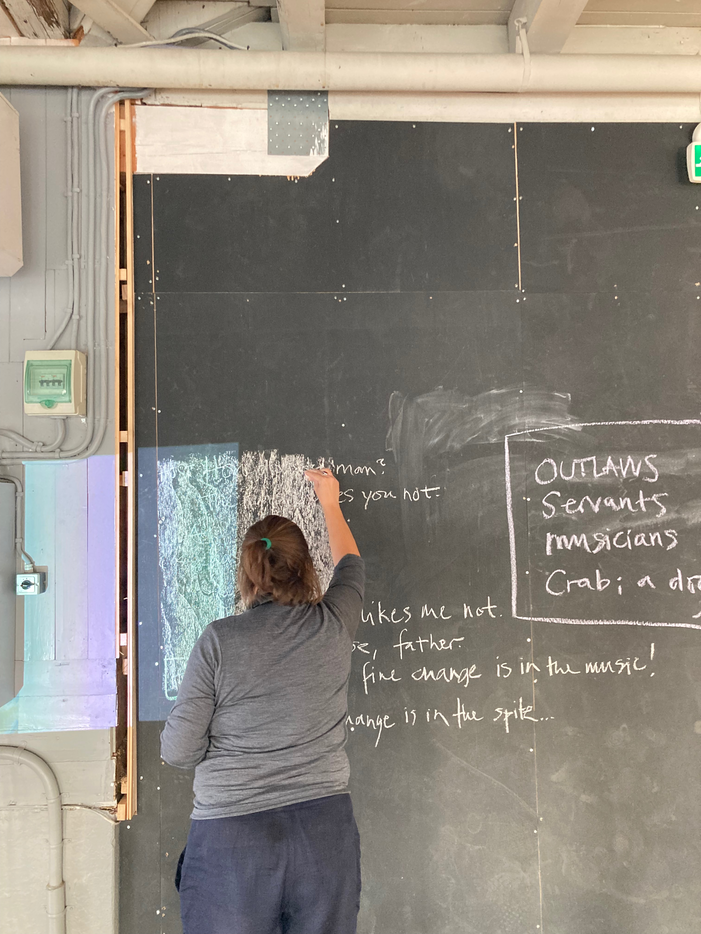 man?
es you not.
likes me not.
, father.
fine change is in the music!
ange is in the spite...
OUTLAWS
Servants
musicians
Crab; a do